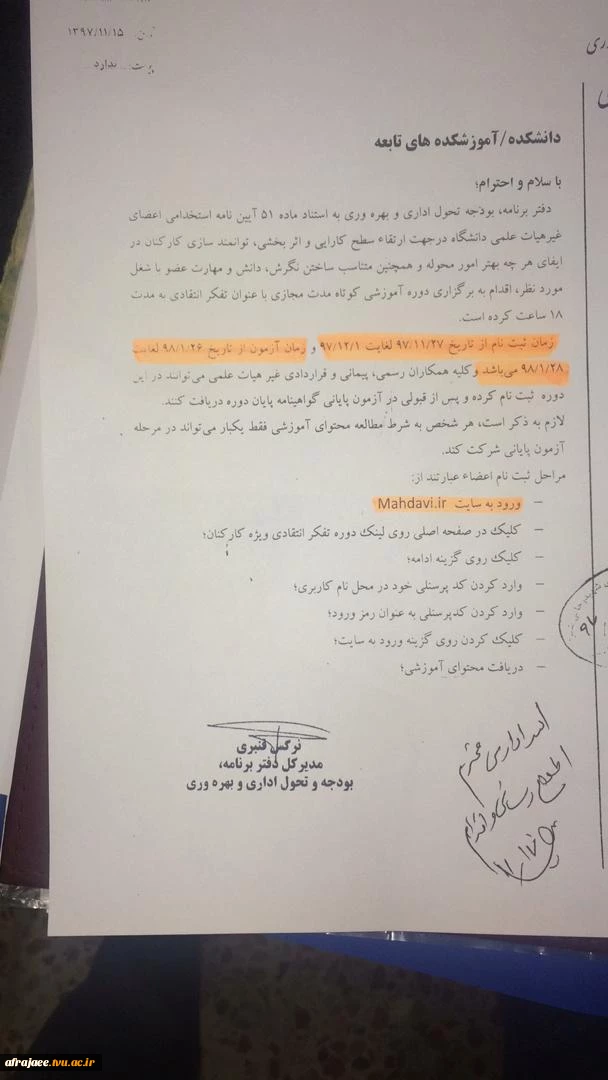 ۱۳۹۷/۱۱/۱۵
ندارد
دانشکده/آموزشکده های تابعه
با سلام و احترام؛
دفتر برنامه، بودجه تحول اداری و بهره وری به استناد ماده ۵۱ آیین نامه استخدامی اعضای
غیرهیات علمی دانشگاه درجهت ارتقاء سطح کارایی و اثر بخشی، توانمند سازی کارکنان در
ایفای هر چه بهتر امور محوله و همچنین متناسب ساختن نگرش، دانش و مهارت عضو با شغل
مورد نظر، اقدام به برگزاری دوره آموزشی کوتاه مدت مجازی با عنوان تفکر انتقادی به مدت
۱۸ ساعت کرده است.
زمان ثبت نام از تاریخ ۹۷/۱۱/۲۷ لغایت ۹۷/۱۲/۱ و زمان آزمون از تاریخ ۹۸/۱/۲۶ لغایت
۹۸/۱/۲۸ می‌باشد وکلیه همکاران رسمی، پیمانی و قراردادی غیر هیات علمی می‌توانند در این
دوره ثبت نام کرده و پس از قبولی در آزمون پایانی گواهینامه پایان دوره دریافت کنند.
لازم به ذکر است، هر شخص به شرط مطالعه محتوای آموزشی فقط یکبار می‌تواند در مرحله
آزمون پایانی شرکت کند.
مراحل ثبت نام اعضاء عبارتند از:
– ورود به سایت Mahdavi.ir
– کلیک در صفحه اصلی روی لینک دوره تفکر انتقادی ویژه کارکنان؛
– کلیک روی گزینه ادامه؛
– وارد کردن کد پرسنلی خود در محل نام کاربری؛
– وارد کردن کدپرسنلی به عنوان رمز ورود؛
– کلیک کردن روی گزینه ورود به سایت؛
– دریافت محتوای آموزشی؛
نرگس قنبری
مدیرکل دفتر برنامه،
بودجه و تحول اداری و بهره وری
afrajaee.tvu.ac.ir